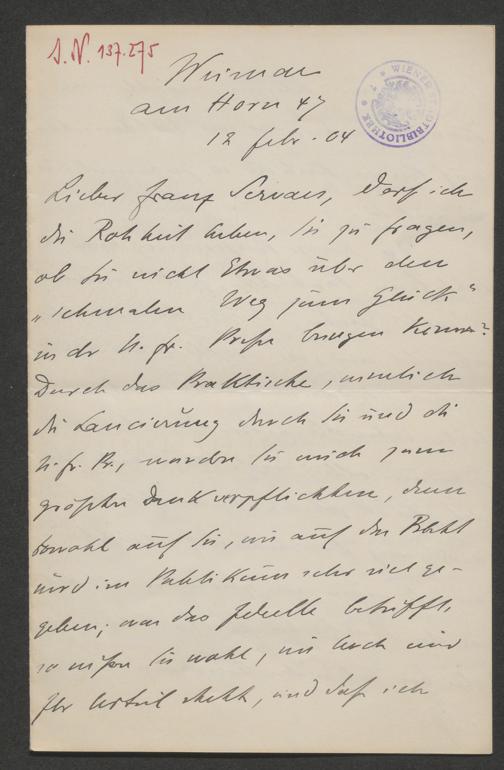 I.N. 137.275
WIENER STADTBIBLIOTHEK
Weimar
am Horn 47
12 febr. 04
Lieber Franz Servaes, Darf ich
die Rohheit haben, Sie zu fragen,
ob Sie nicht Etwas über den
„schmalen Weg zum Glück"
in der N. fr. Presse bringen können?
Durch das Praktische, nämlich
die Lancierung durch Sie und die
N. fr. Pr., würden Sie mich zum
größten Dank verpflichten, denn
sowohl auf Sie, wie auf das Blatt
wird im Publikum sehr viel ge-
geben; was das Ideelle betrifft,
so wissen Sie wohl, wie hoch mir
Ihr Urteil steht, und daß ich